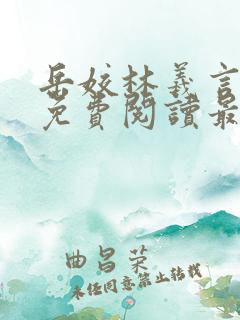 岳姣林義言
免費閱讀最
曲昌榮
未任同意禁止转载